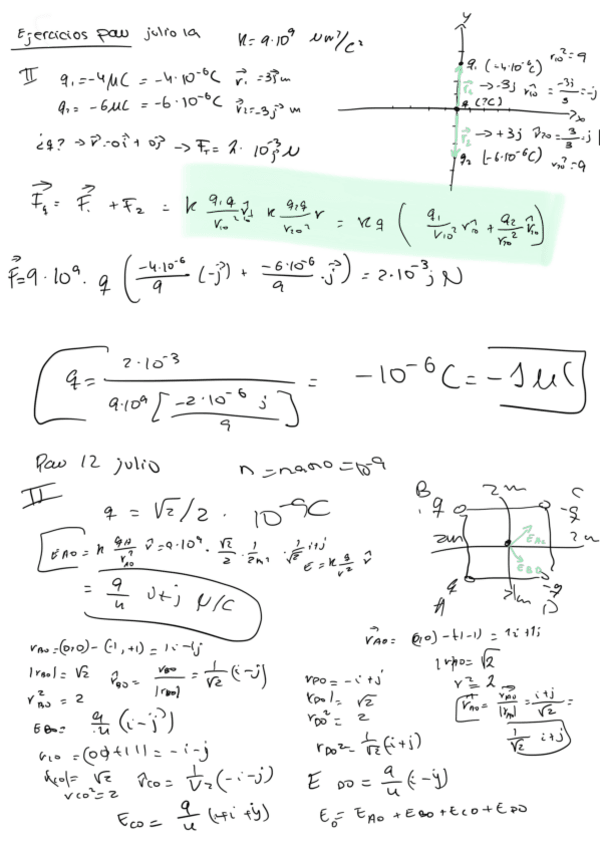 Ejercicios pau julio 19 K = 9·10⁹ Nm²/C²
II q₁ = -4μC = -4·10⁻⁶C r⃗₁ = 3j⃗ m
q₂ = -6μC = -6·10⁻⁶C r⃗₂ = -3j⃗ m
¿q? → r⃗ = 0i⃗ + 0j⃗ → F₁ = 2·10⁻³j N
y
q₁ (-4·10⁻⁶C) r₁₀² = 9
r⃗₁ → -3j r⃗₁₀ = -3j/3 = -j
q (?C)
x
r⃗₂ → +3j r⃗₂₀ = 3/3 j
q₂ (-6·10⁻⁶C) r₂₀² = 9
F⃗q = F⃗₁ + F₂ = K q₁q/r₁₀² r⃗₁ K q₂q/r₂₀² r = Kq (q₁/r₁₀² r⃗₁₀ + q₂/r₂₀² r⃗₂₀)
F⃗ = 9·10⁹ · q (-4·10⁻⁶/9 (-j⃗) + -6·10⁻⁶/9 · j⃗) = 2·10⁻³j N
q = 2·10⁻³ / 9·10⁹ [-2·10⁻⁶ j / 9] = -10⁻⁶C = -1μC
Pau 12 julio n = nano = 10⁻⁹
II q = √2/2 · 10⁻⁹C
E_AO = K q_A/r²_AO r⃗ = 9·10⁹ · √2/2 · 1/2m² · 1/√2 i+j E = K q/r² r⃗
= 9/4 i+j N/C
B 2m C
q -q
2m 2m
E_AO
E_BO
q -q
A 2m D
r_BO = (0,0) - (-1,+1) = 1i - 1j
|r_BO| = √2 r̂_BO = r_BO/|r_BO| = 1/√2 (i-j)
r²_BO = 2
E_BO = 9/4 (i-j⃗)
r_CO = (0,0) + (1,1) = -i-j
|r_CO| = √2 r̂_CO = 1/√2 (-i-j)
r_CO² = 2
E_CO = 9/4 (+i+j)
r_DO = -i+j
|r_DO| = √2
r²_DO = 2
r_DO² = 1/√2 (i+j)
E_DO = 9/4 (-i-j)
r⃗_AO = (0,0) - (-1-1) = 1i+1j
|r_AO| = √2
r² = 2
r⃗_AO = r⃗_AO/|r_AO| = i+j/√2 =
1/√2 i+j
E₀ = E_AO + E_BO + E_CO + E_DO